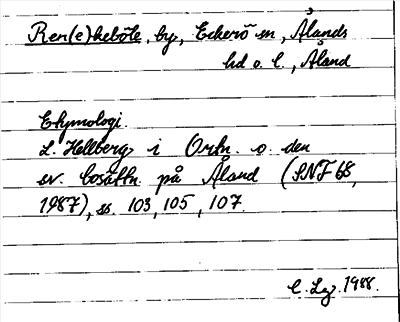 Ren(e)keböle, by, Eckerö sn, Ålands
hd o. l., Åland
Etymologi.
L. Hellberg i Ortn. o. den
sv. bosättn. på Åland (SNF 68,
1987), ss. 103, 105, 107.
1988.